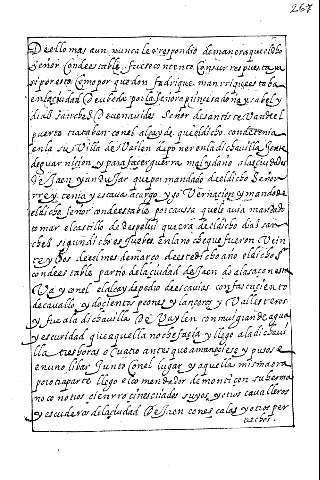 267
De ello mas aun nunca le respondio de manera que el dho
señor condestable fuese contento con su respuesta
si por esto como por que don fadrique manrrique estaba
en la ciudad De ubeda por la señora princesa doña ysabel y
dia sanches De benavides señor de santisteban del
puerto trataban con el alcayde que el dicho conde tenia
en la su Villa de Bailen de poner en la dicha villa gente
de guarnicion y para facer guerra mal y daño a las ciudades
de Jaen y andujar que por mandado del dicho señor
rrey tenia y estava a cargo y governacion y mando
el dicho señor condestable por caussa que le avia mandado
tomar el castillo de despelui que era del dicho dia san
ches segun dicho es Jueves en la noche que fueron Vein
te y dos de el mes de março de este dicho año el dicho
condestable partio de la ciudad de Jaen
y con el el alcayde pedro de escavias con fasta ciento
de cavallo y docientos peones y lanceros y Vallesteros
y fue a la dicha villa De Vaylen con muy grande agua
y escuridad que aquella noche facia y llego a la dicha vi
lla tres horas o cuatro antes que amaneciese y pusose
en un olibar Junto con el lugar y aquella misma ora
por otra parte llego el comendador de montiçon su herma
no con otros ciento cinquenta suyos y otros cavalleros
y escuderos de la ciudad De Jaen con escalas y otros per
trechos.